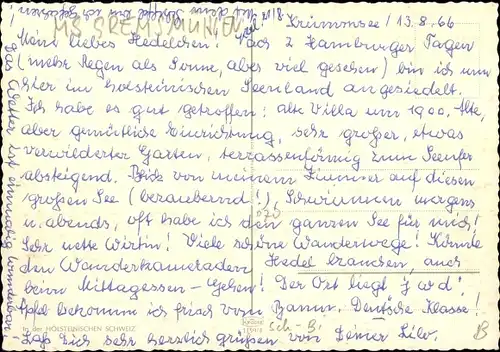 Krummsee / 13.8.66
MS GREMSMÜHLEN
Mein liebes Hedelchen! Nach 2 Hamburger Tagen
(mehr Regen als Sonne, aber viel gesehen) bin ich nun
hier im holsteinischen Seenland angesiedelt.
Ich habe es gut getroffen: alte Villa um 1900. Alte,
aber gemütliche Einrichtung, sehr großer, etwas
verwilderter Garten, terrassenförmig zum Seeufer
absteigend. Blick von meinem Zimmer auf diesen
großen See (bezaubernd!). Schwimmen morgens
u. abends, oft habe ich den ganzen See für mich!
Sehr nette Wirtin! Viele schöne Wanderwege! Könnte
den Wanderkameraden Hedel brauchen, auch
beim Mittagessen-Gehen! Der Ort liegt j w d!
Äpfel bekomm ich frisch vom Baum. Deutsche Klasse!
In der HOLSTEINISCHEN SCHWEIZ
Sch-B.
B
Laß Dich sehr herzlich grüßen von Deiner Lilo.
Das Wetter ist